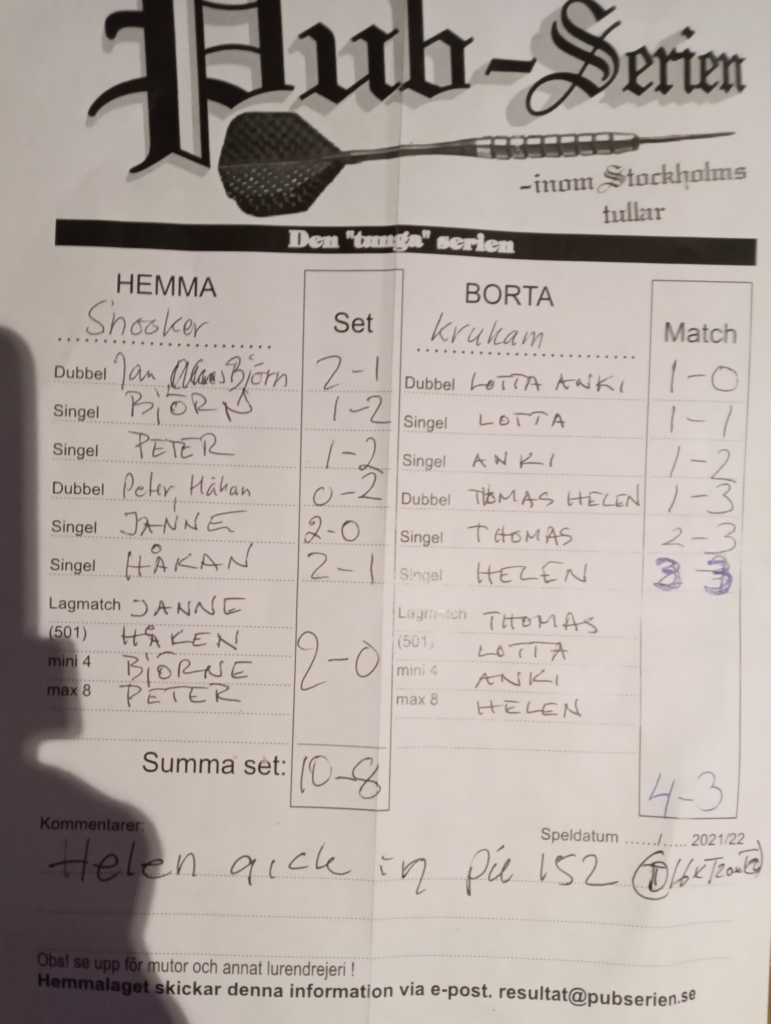 Pub-Serien
-inom Stockholms
tullar
Den "tunga" serien
HEMMA Set BORTA Match
Snooker Kruham
Dubbel Jan Björn 2-1 Dubbel LOTTA ANKI 1-0
Singel BJÖRN 1-2 Singel LOTTA 1-1
Singel PETER 1-2 Singel ANKI 1-2
Dubbel Peter, Håkan 0-2 Dubbel THOMAS HELEN 1-3
Singel JANNE 2-0 Singel THOMAS 2-3
Singel HÅKAN 2-1 Singel HELEN 3 3
Lagmatch JANNE Lagmatch THOMAS
(501) HÅKEN 2-0 (501) LOTTA
mini 4 BJÖRNE mini 4 ANKI
max 8 PETER max 8 HELEN
Summa set: 10-8 4-3
Kommentarer: Speldatum ....../...... 2021/22
Helen gick in på 152
Obs! se upp för mutor och annat lurendrejeri !
Hemmalaget skickar denna information via e-post. resultat@pubserien.se